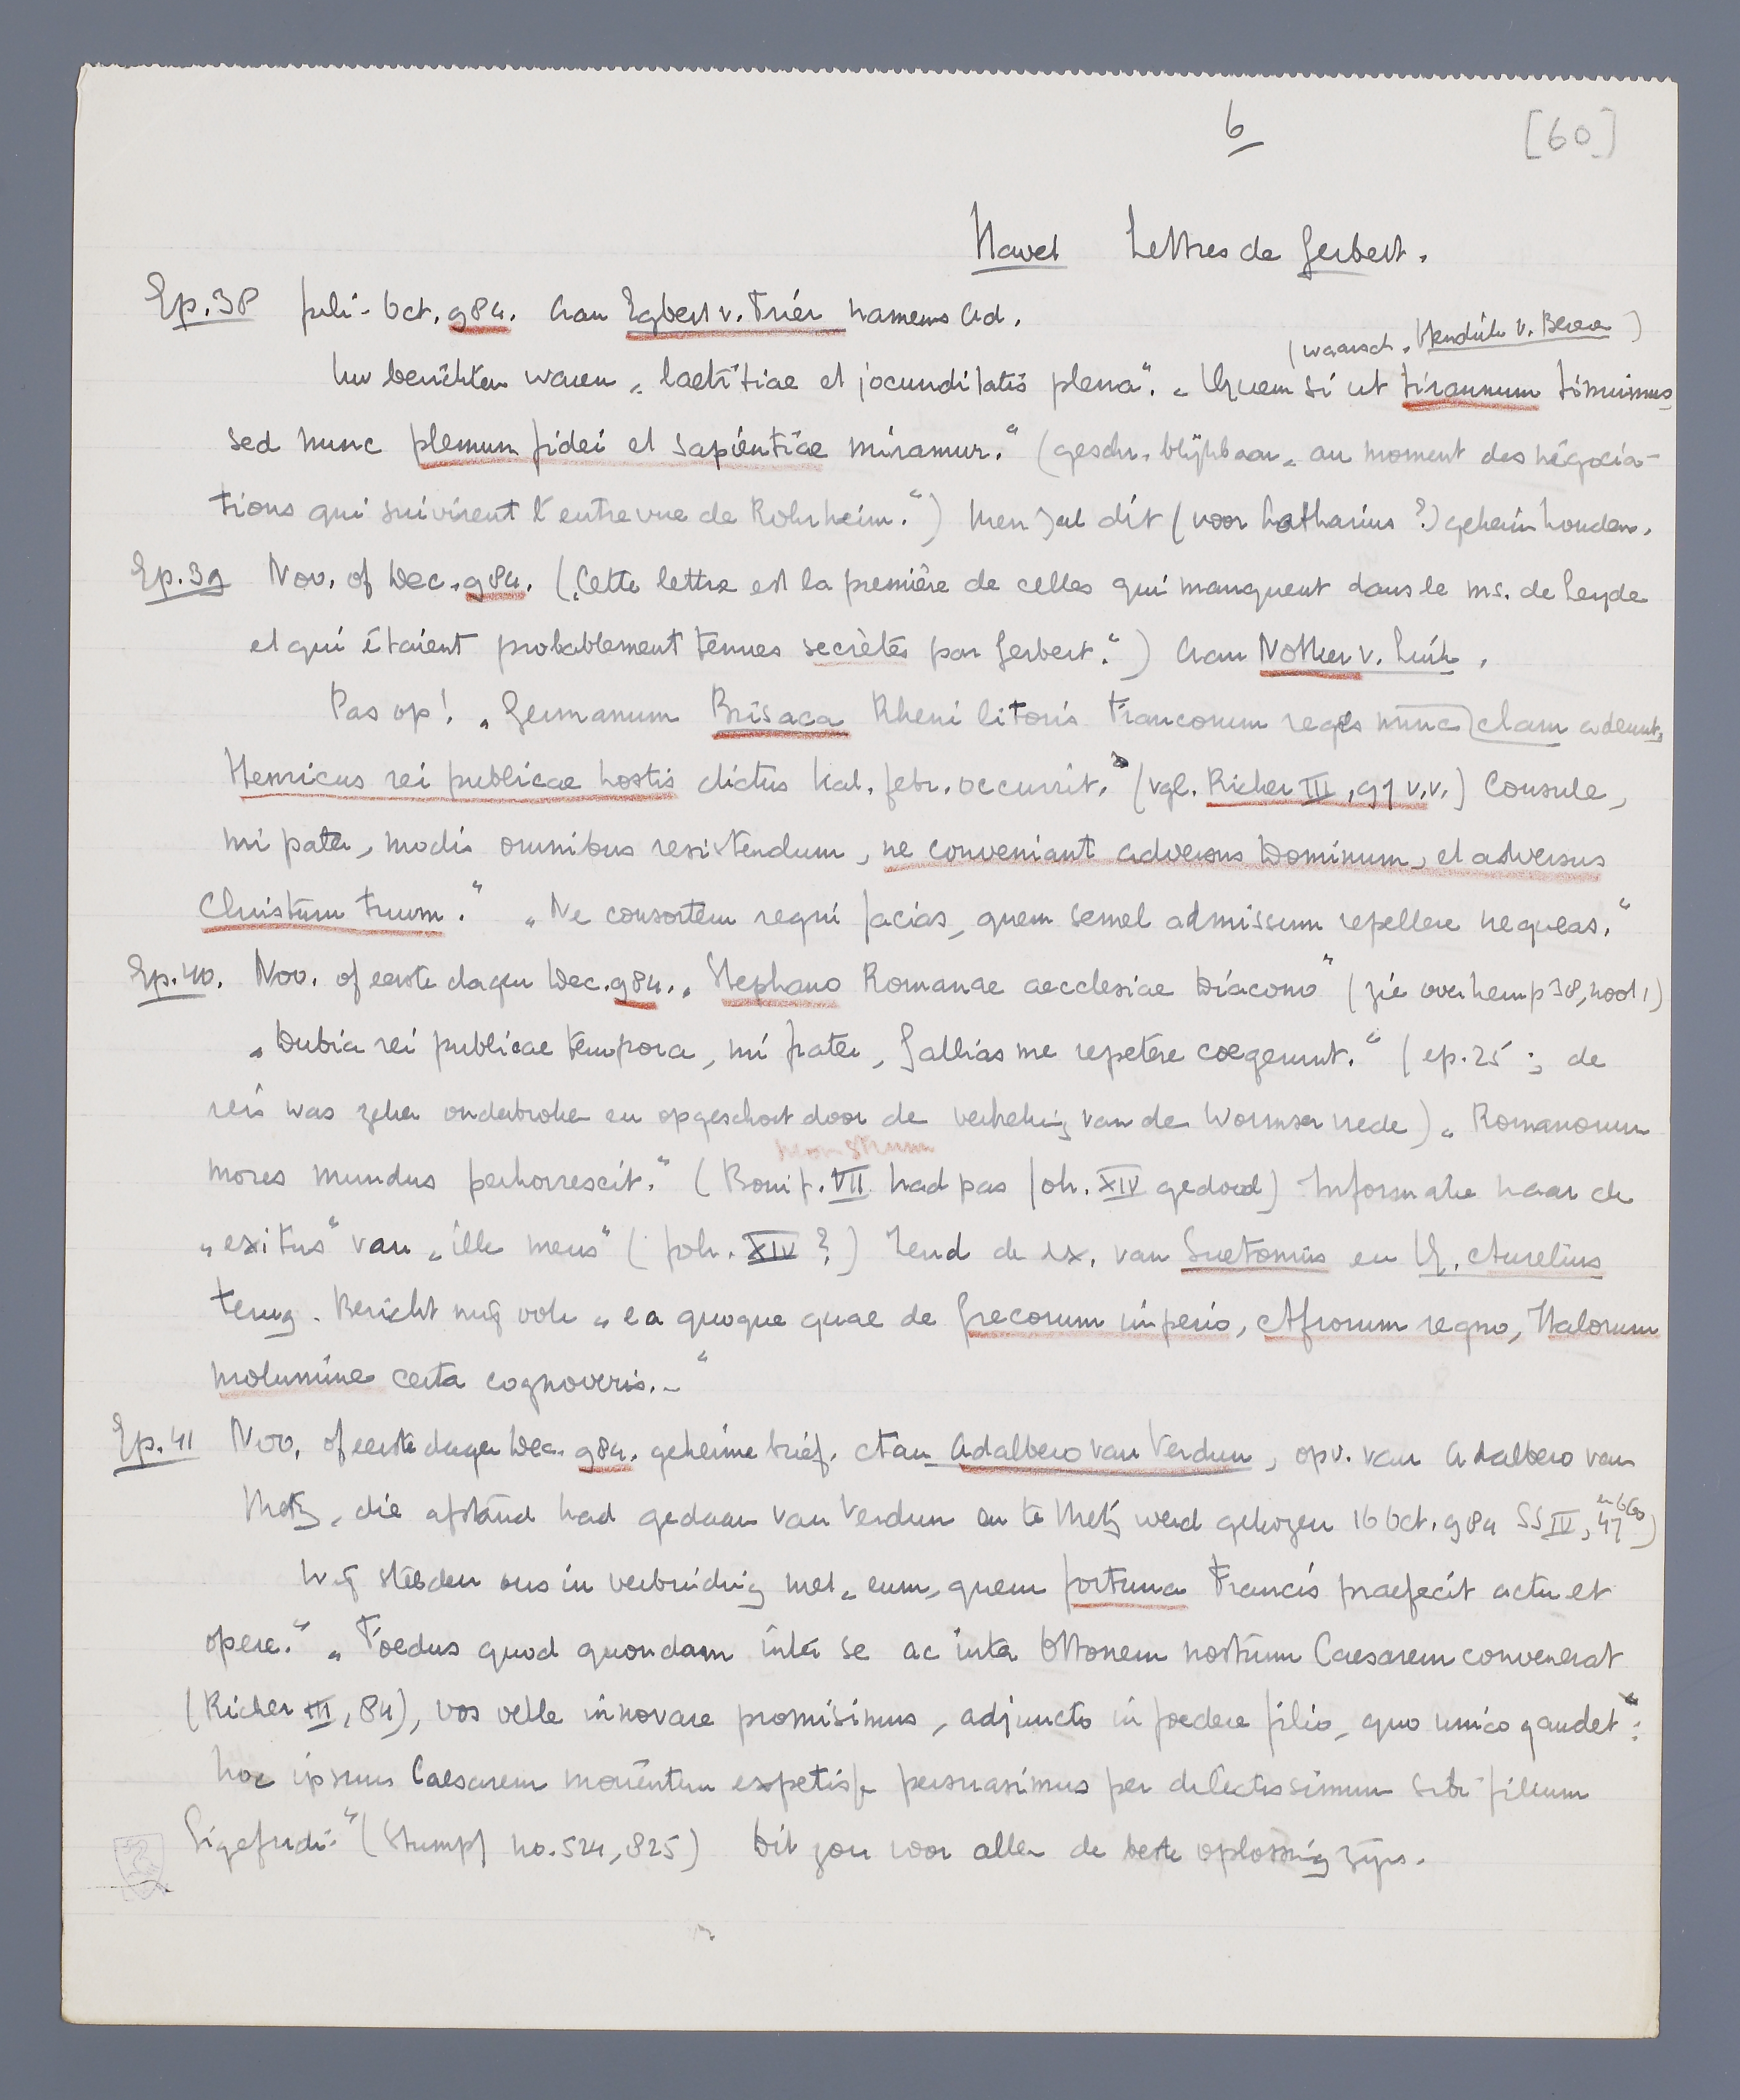 6
[60]
Havet Lettres de Gerbert.
Ep. 38 Juli - Oct. 984. Aan Egbert v. Trier namens Ad.
(waarsch. Hendrik v. Beieren)
Uw berichten waren „laetitiae et jocunditatis plena“. „Quem si ut tirannum timuimus,
sed nunc plenum fidei et sapientiae miramur.“ (geschr. blijkbaar „au moment des négocia-
tions qui suivirent l'entrevue de Rohrheim.“) Men zal dit (voor Lotharius?) geheim houden.
Ep. 39 Nov. of Dec. 984. („Cette lettre est la première de celles qui manquent dans le ms. de Leyde
et qui étaient probablement tenues secrètes par Gerbert.“) Aan Notker v. Luik.
Pas op! „Germanum Brisaca Rheni litoris Francorum reges nunc clam adeunt,
Henricus rei publicae hostis dictus kal. febr. occurrit.“ (vgl. Richer III, 97 v.v.) Consule,
mi pater, modis omnibus resistendum, ne conveniant adversus Dominum, et adversus
Christum tuum.“ „Ne consortem regni facias, quem semel admissum repellere nequeas.“
Ep. 40. Nov. of eerste dagen Dec. 984. „Stephano Romanae aecclesiae Diacono“ (zie over hem p 38, noot 1)
„Dubia rei publicae tempora, mi frater, Gallias me repetere coegerunt.“ (ep. 25; de
reis was zeker onderbroken en opgeschort door de verbreking van de Wormser vrede). „Romanorum
monstrum
mores mundus perhorrescit.“ (Bonif. VII had pas Joh. XIV gedood) Informatie naar de
„exitus“ van „ille meus“ (Joh. XIV?) Zend de ex. van Suetonius en Q. Aurelius
terug. Bericht mij ook „ea quoque quae de Grecorum imperio, Afrorum regno, Italorum
molumine certa cognoveris.-“
Ep. 41 Nov. of eerste dagen Dec. 984. geheime brief. Aan Adalbero van Verdun, opv. van Adalbero van
Metz, die afstand had gedaan van Verdun en te Metz werd gekozen 16 Oct. 984 SS IV, 47 en 660)
Wij stelden ons in verbinding met „eum, quem fortuna Francis praefecit actu et
opere.“ „Foedus quod quondam inter se ac inter Ottonem nostrum Caesarem convenerat
(Richer III, 84), vos velle innovare promisimus, adjuncto in foedere filio, quo unico gaudet“:
hoc ipsum Caesarem morientem expetisse persuasimus per dilectissimum sibi filium
Sigefridi“ (Stumpf no. 524, 825) Dit zou voor allen de beste oplossing zijn.